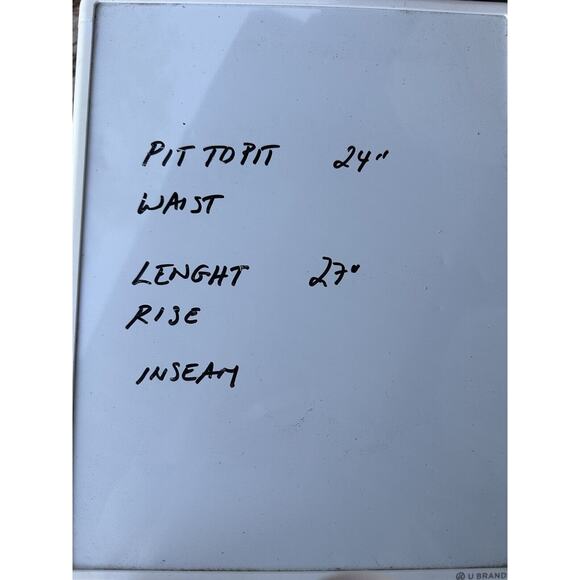 PIT TO PIT 24"
WAIST
LENGHT 27"
RISE
INSEAM
U BRAND